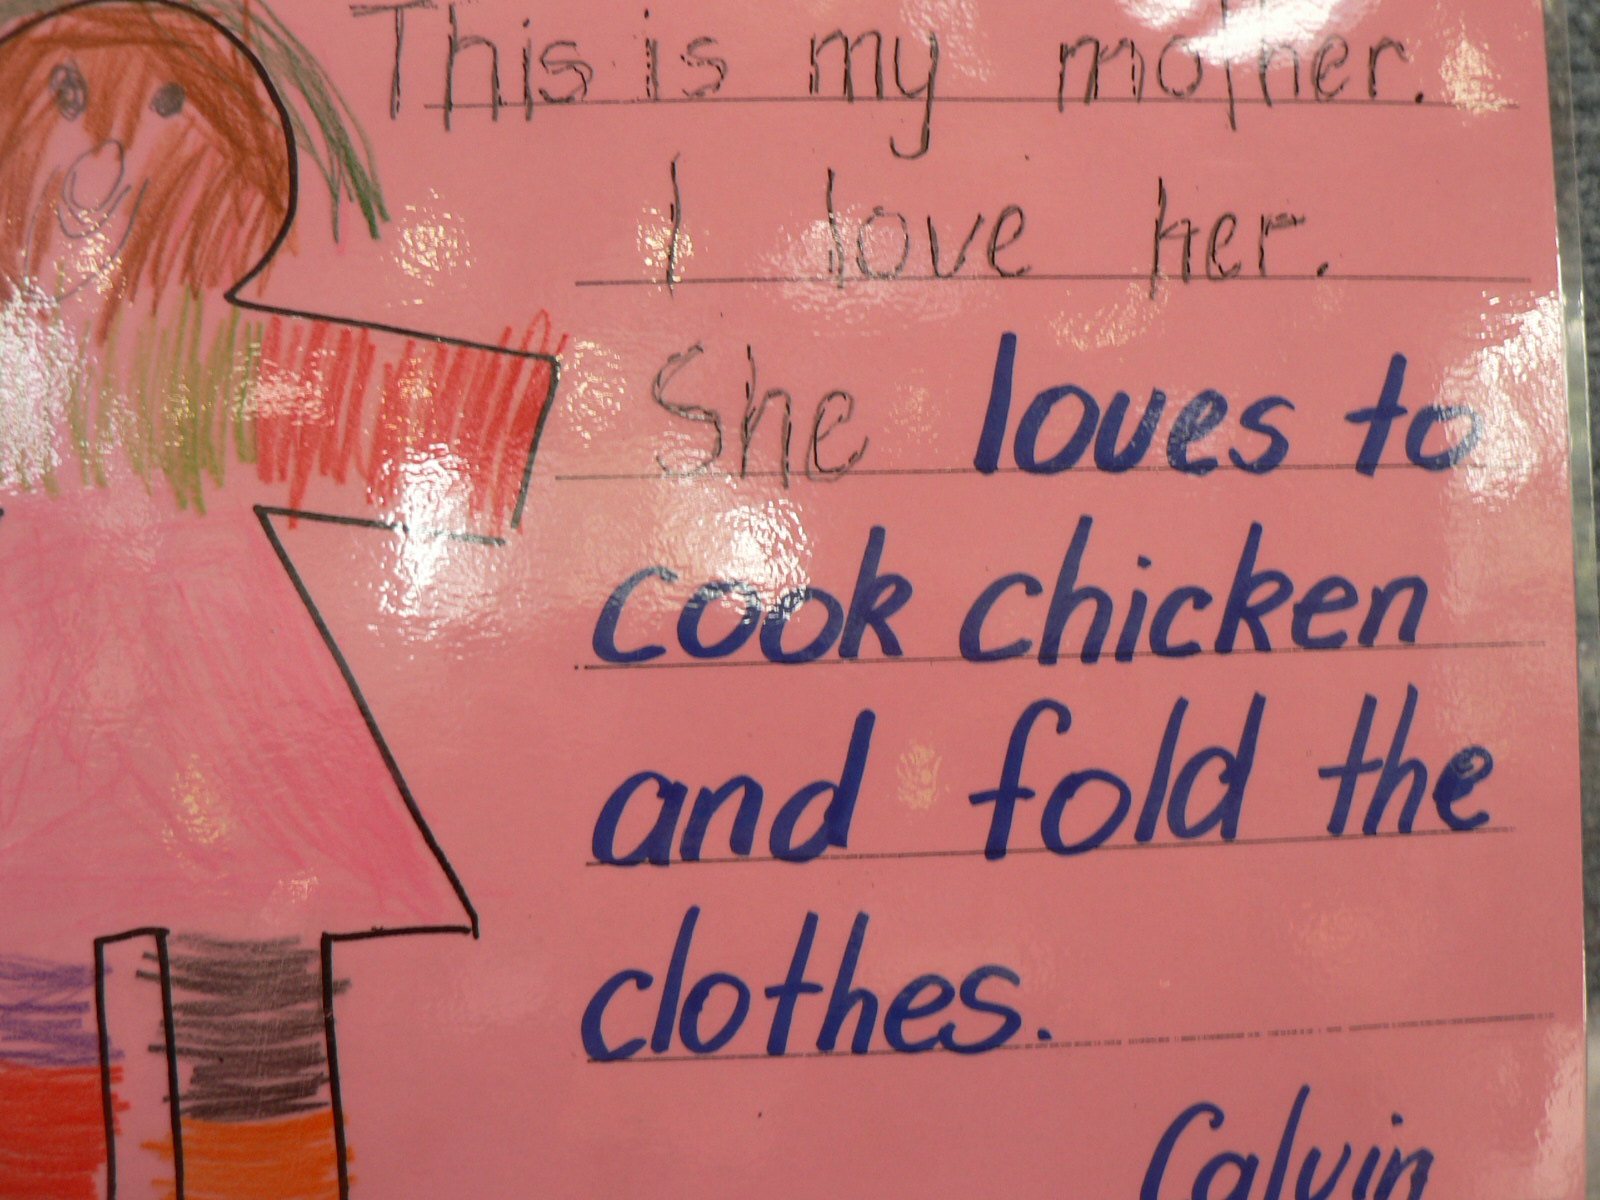 This is my mother.
I love her.
She loves to
cook chicken
and fold the
clothes.
Calvin